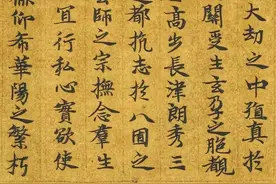 大劫之中殖真於
關受生玄孕之胞觀
高步長津朗秀三
之都抗志於八囿之
師之宗撫念羣生
宜行私心寶欲使
仰希華陽之繁朽